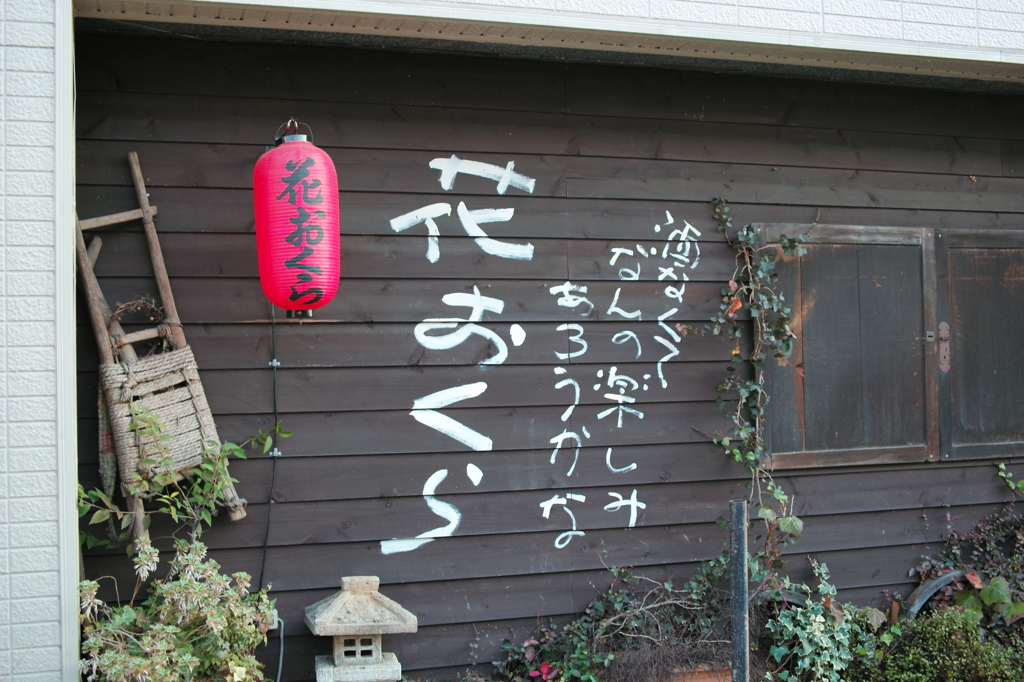 酒なくて
なんの楽しみ
あろうかな
花おくら
花おくら